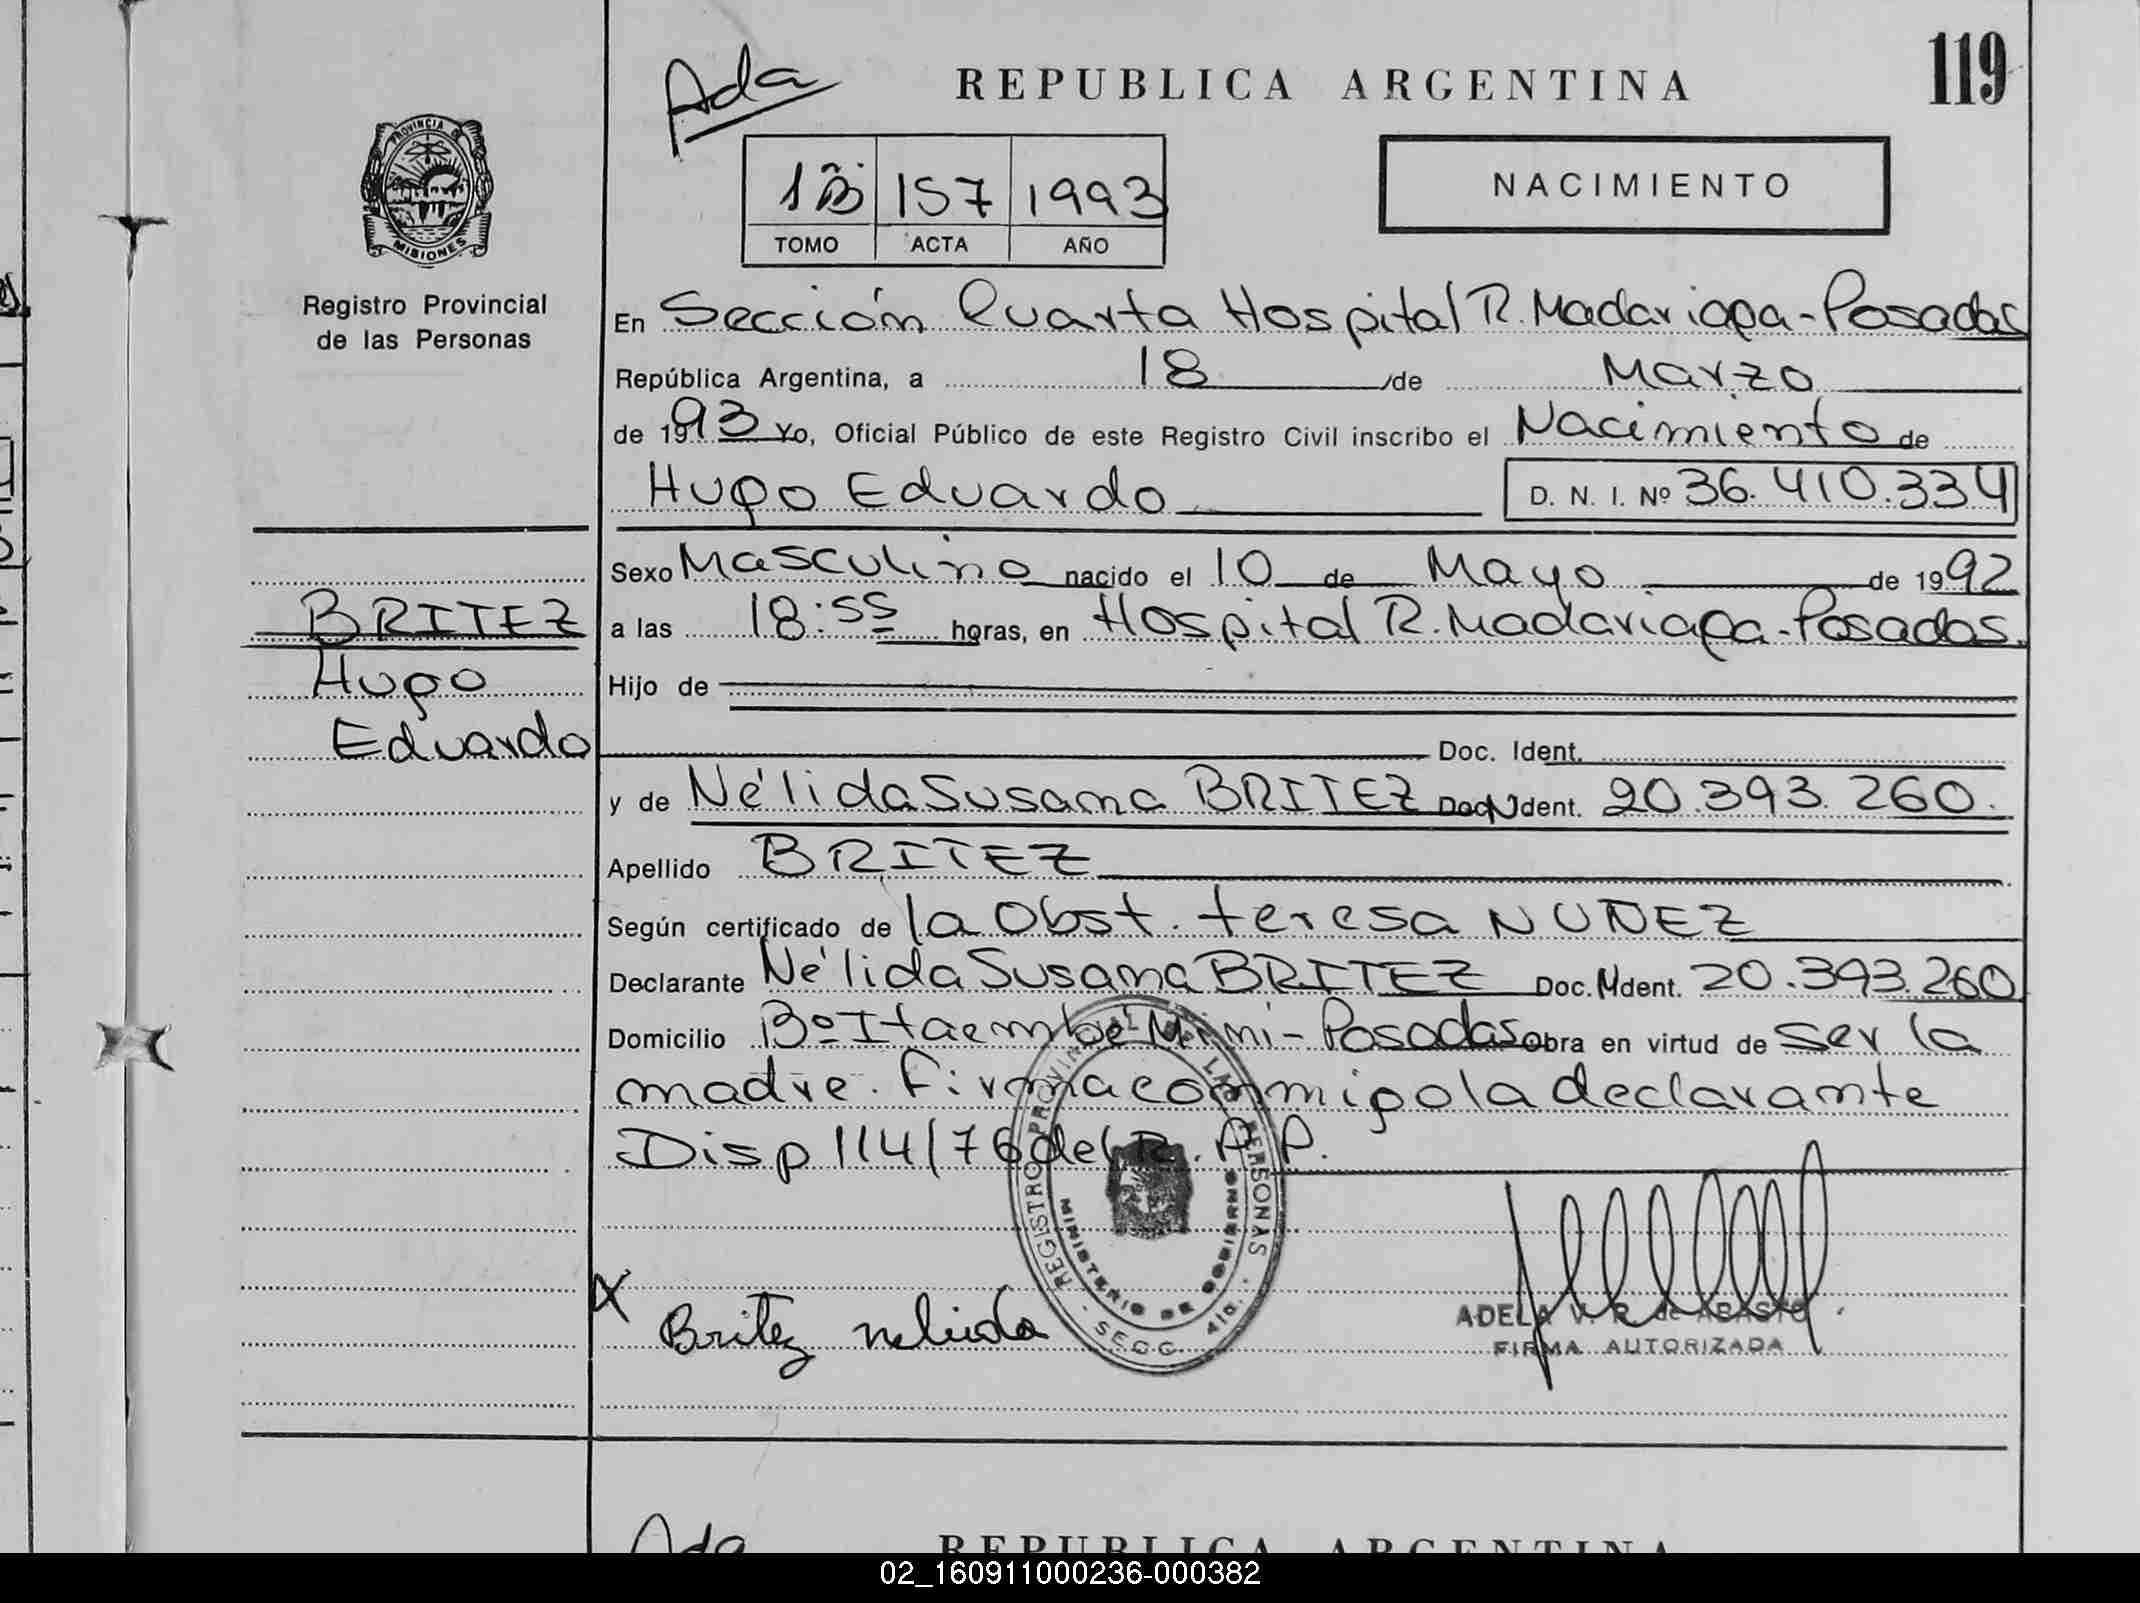 Ada
REPUBLICA ARGENTINA
119
PROVINCIA DE
MISIONES
Registro Provincial
de las Personas
1B 157 1993
TOMO ACTA AÑO
NACIMIENTO
En Sección Cuarta Hospital R. Madariaga - Posadas
República Argentina, a 18 de Marzo
de 1993 Yo, Oficial Público de este Registro Civil inscribo el Nacimiento de
Hugo Eduardo D. N. I. Nº 36.410.334
Sexo Masculino nacido el 10 de Mayo de 1992
a las 18:55 horas, en Hospital R. Madariaga - Posadas.
Hijo de
Doc. Ident.
BRITEZ
Hugo
Eduardo
y de Nélida Susana BRITEZ Doc. Ident. 20.393.260.
Apellido BRITEZ
Según certificado de la Obst. teresa NUÑEZ
Declarante Nélida Susana BRITEZ Doc. Ident. 20.393.260
Domicilio Bº Itaembe Mini - Posadas obra en virtud de ser la
madre. Firma conmigo la declarante
Disp 114/76 del R. P. P.
REGISTRO PROVINCIAL DE LAS PERSONAS
MINISTERIO DE GOBIERNO
SECC. 4ta.
X Britez nelida
ADELA V. R. de ABASTO
FIRMA AUTORIZADA
Ada
REPUBLICA ARGENTINA
02_160911000236-000382